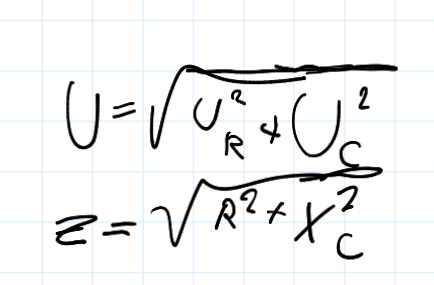 U = √(U_R² + U_C²)
z = √(R² + X_C²)